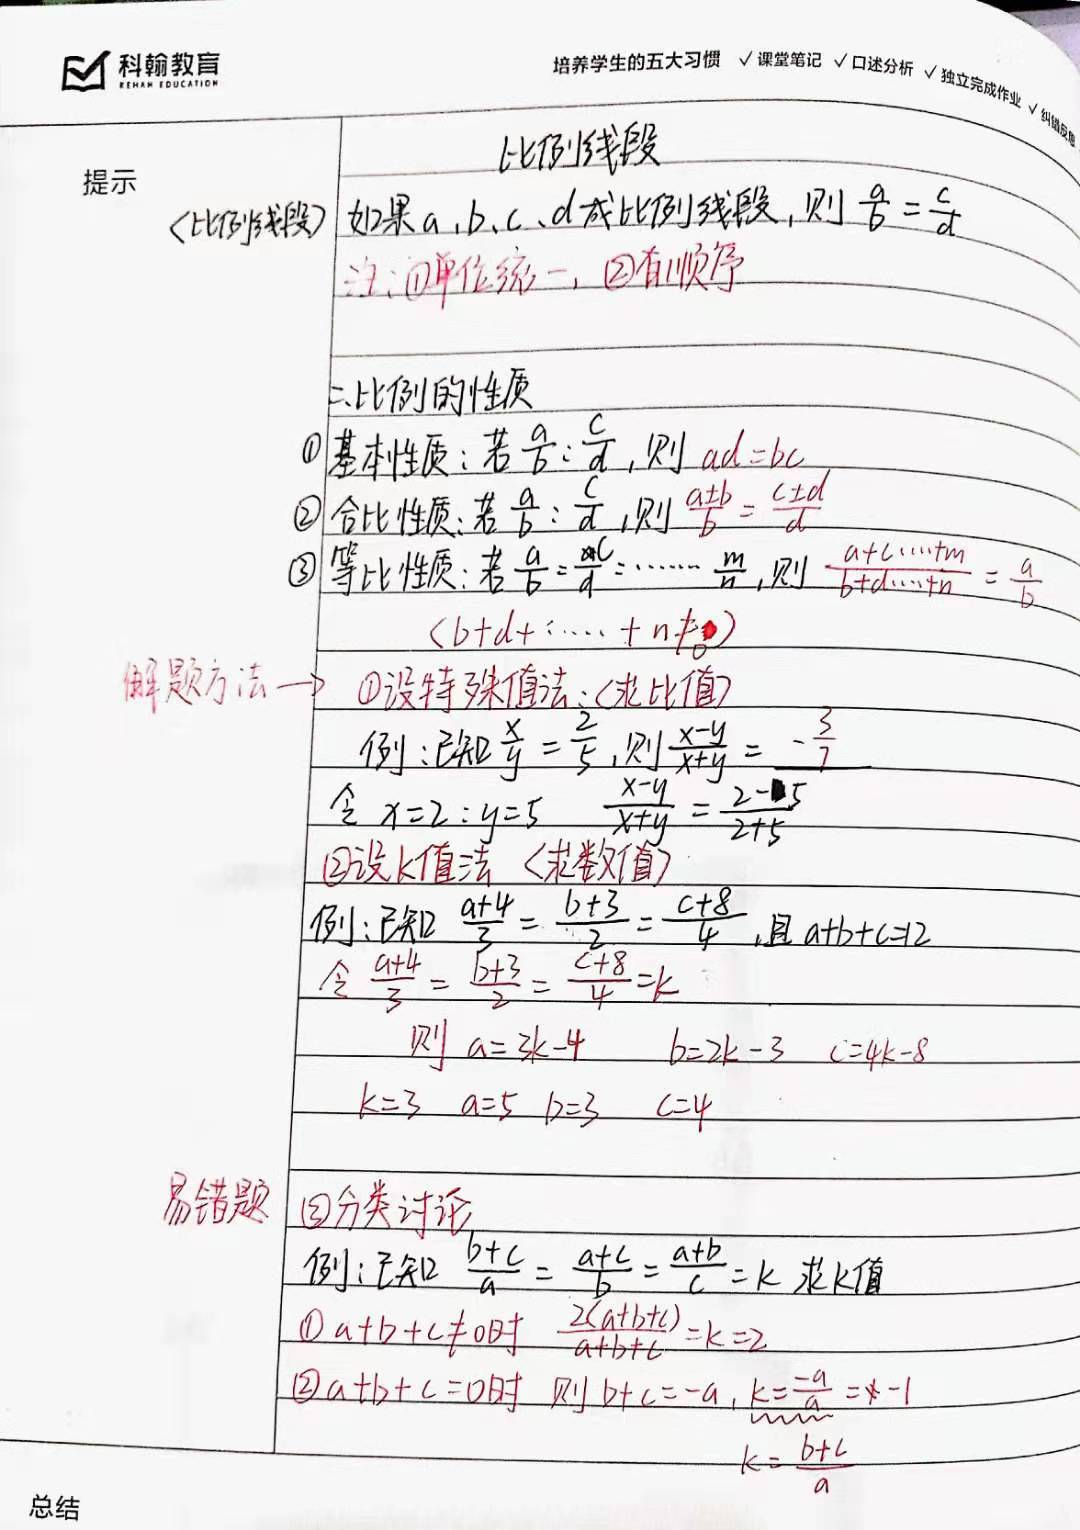 科翰教育
KEHAN EDUCATION
培养学生的五大习惯 ✓课堂笔记 ✓口述分析 ✓独立完成作业 ✓纠错反思
提示
比例线段
<比例线段> 如果a、b、c、d成比例线段,则 a/b = c/d
注:①单位统一,②有顺序
二、比例的性质
① 基本性质:若 a/b : c/d ,则 ad=bc
② 合比性质:若 a/b : c/d ,则 (a±b)/b = (c±d)/d
③ 等比性质:若 a/b = c/d = ⋯⋯ m/n ,则 (a+c⋯⋯+m)/(b+d⋯⋯+n) = a/b
<b+d+⋯⋯+n≠0>
解题方法→ ①设特殊值法:<求比值>
例:已知 x/y = 2/5 ,则 (x-y)/(x+y) = -3/7
令 x=2:y=5 (x-y)/(x+y) = (2-5)/(2+5)
②设k值法 <求数值>
例:已知 (a+4)/3 = (b+3)/2 = (c+8)/4 ,且 a+b+c=12
令 (a+4)/3 = (b+3)/2 = (c+8)/4 =k
则 a=3k-4 b=2k-3 c=4k-8
k=3 a=5 b=3 c=4
易错题 ③分类讨论
例:已知 (b+c)/a = (a+c)/b = (a+b)/c = k 求k值
①a+b+c≠0时 2(a+b+c)/(a+b+c) =k=2
②a+b+c=0时 则 b+c=-a, k= -a/a = -1
k= (b+c)/a
总结